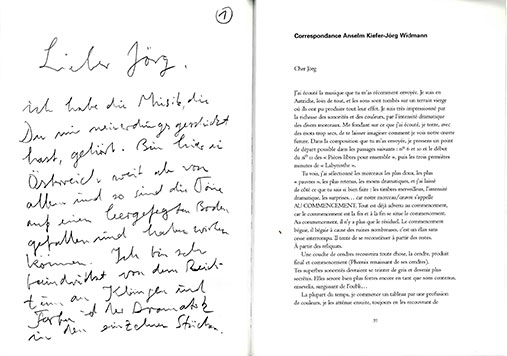 1
Lieber Jörg.
ich habe die Musik, die
Du mir neuerdings geschickt
hast, gehört. Bin hier in
Österreich, weit ab von
allem und so sind die Töne
auf einen leergefegten Boden
gefallen und haben wirken
können. Ich bin sehr
beeindruckt von dem Reich-
tum an Klängen und
Farben ist der Dramatik
in den einzelnen Stücken.
Correspondance Anselm Kiefer-Jörg Widmann
Cher Jörg
J'ai écouté la musique que tu m'as récemment envoyée. Je suis en
Autriche, loin de tout, et les sons sont tombés sur un terrain vierge
où ils ont pu produire tout leur effet. Je suis très impressionné par
la richesse des sonorités et des couleurs, par l'intensité dramatique
des divers morceaux. Me fondant sur ce que j'ai écouté, je tente, avec
des mots trop secs, de te laisser imaginer comment je vois notre œuvre
future. Dans la composition que tu m'as envoyée, je pressens un point
de départ possible dans les passages suivants : nº 6 et et le début
du nº 11 des « Pièces libres pour ensemble », puis les trois premières
minutes de « Labyrinthe ».
Tu vois, j'ai sélectionné les morceaux les plus doux, les plus
« pauvres », les plus retenus, les moins dramatiques, et j'ai laissé
de côté ce que tu sais si bien faire : les timbres merveilleux, l'intensité
dramatique, les surprises… car notre morceau/œuvre s'appelle
AU COMMENCEMENT. Tout est déjà advenu au commencement,
car le commencement est la fin et à la fin se situe le commencement.
Au commencement, il n'y a plus que le résiduel. Le commencement
bégaie, il bégaie à cause des ruines nombreuses, c'est un élan sans
cesse interrompu. Il tente de se reconstituer à partir des restes.
À partir des reliquats.
Une couche de cendres recouvrira toute chose, la cendre, produit
final et commencement (Phœnix renaissant de ses cendres).
Tes superbes sonorités devraient se teinter de gris et devenir plus
secrètes. Elles seront bien plus fortes encore en tant que sons contenus,
ensevelis, surgissant de l'oubli…
La plupart du temps, je commence un tableau par une profusion
de couleurs, je les atténue ensuite, toujours en les recouvrant de